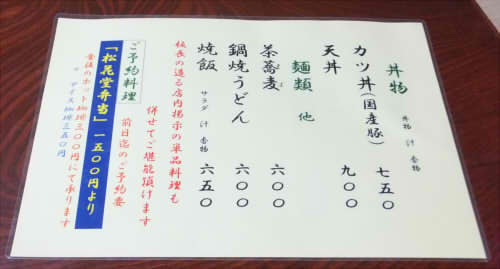 丼物
丼物 汁 香物
カツ丼(国産豚) 七五〇
天丼 九〇〇
麺類 他
茶蕎麦 六〇〇
そば
鍋焼うどん 六〇〇
焼飯 六五〇
サラダ 汁 香物
板長の造る店内掲示の単品料理も
併せてご堪能頂けます
ご予約料理 前日迄のご予約要
「松花堂弁当」一五〇〇円より
食後のホット珈琲三〇〇円にて承ります
アイス珈琲三五〇円